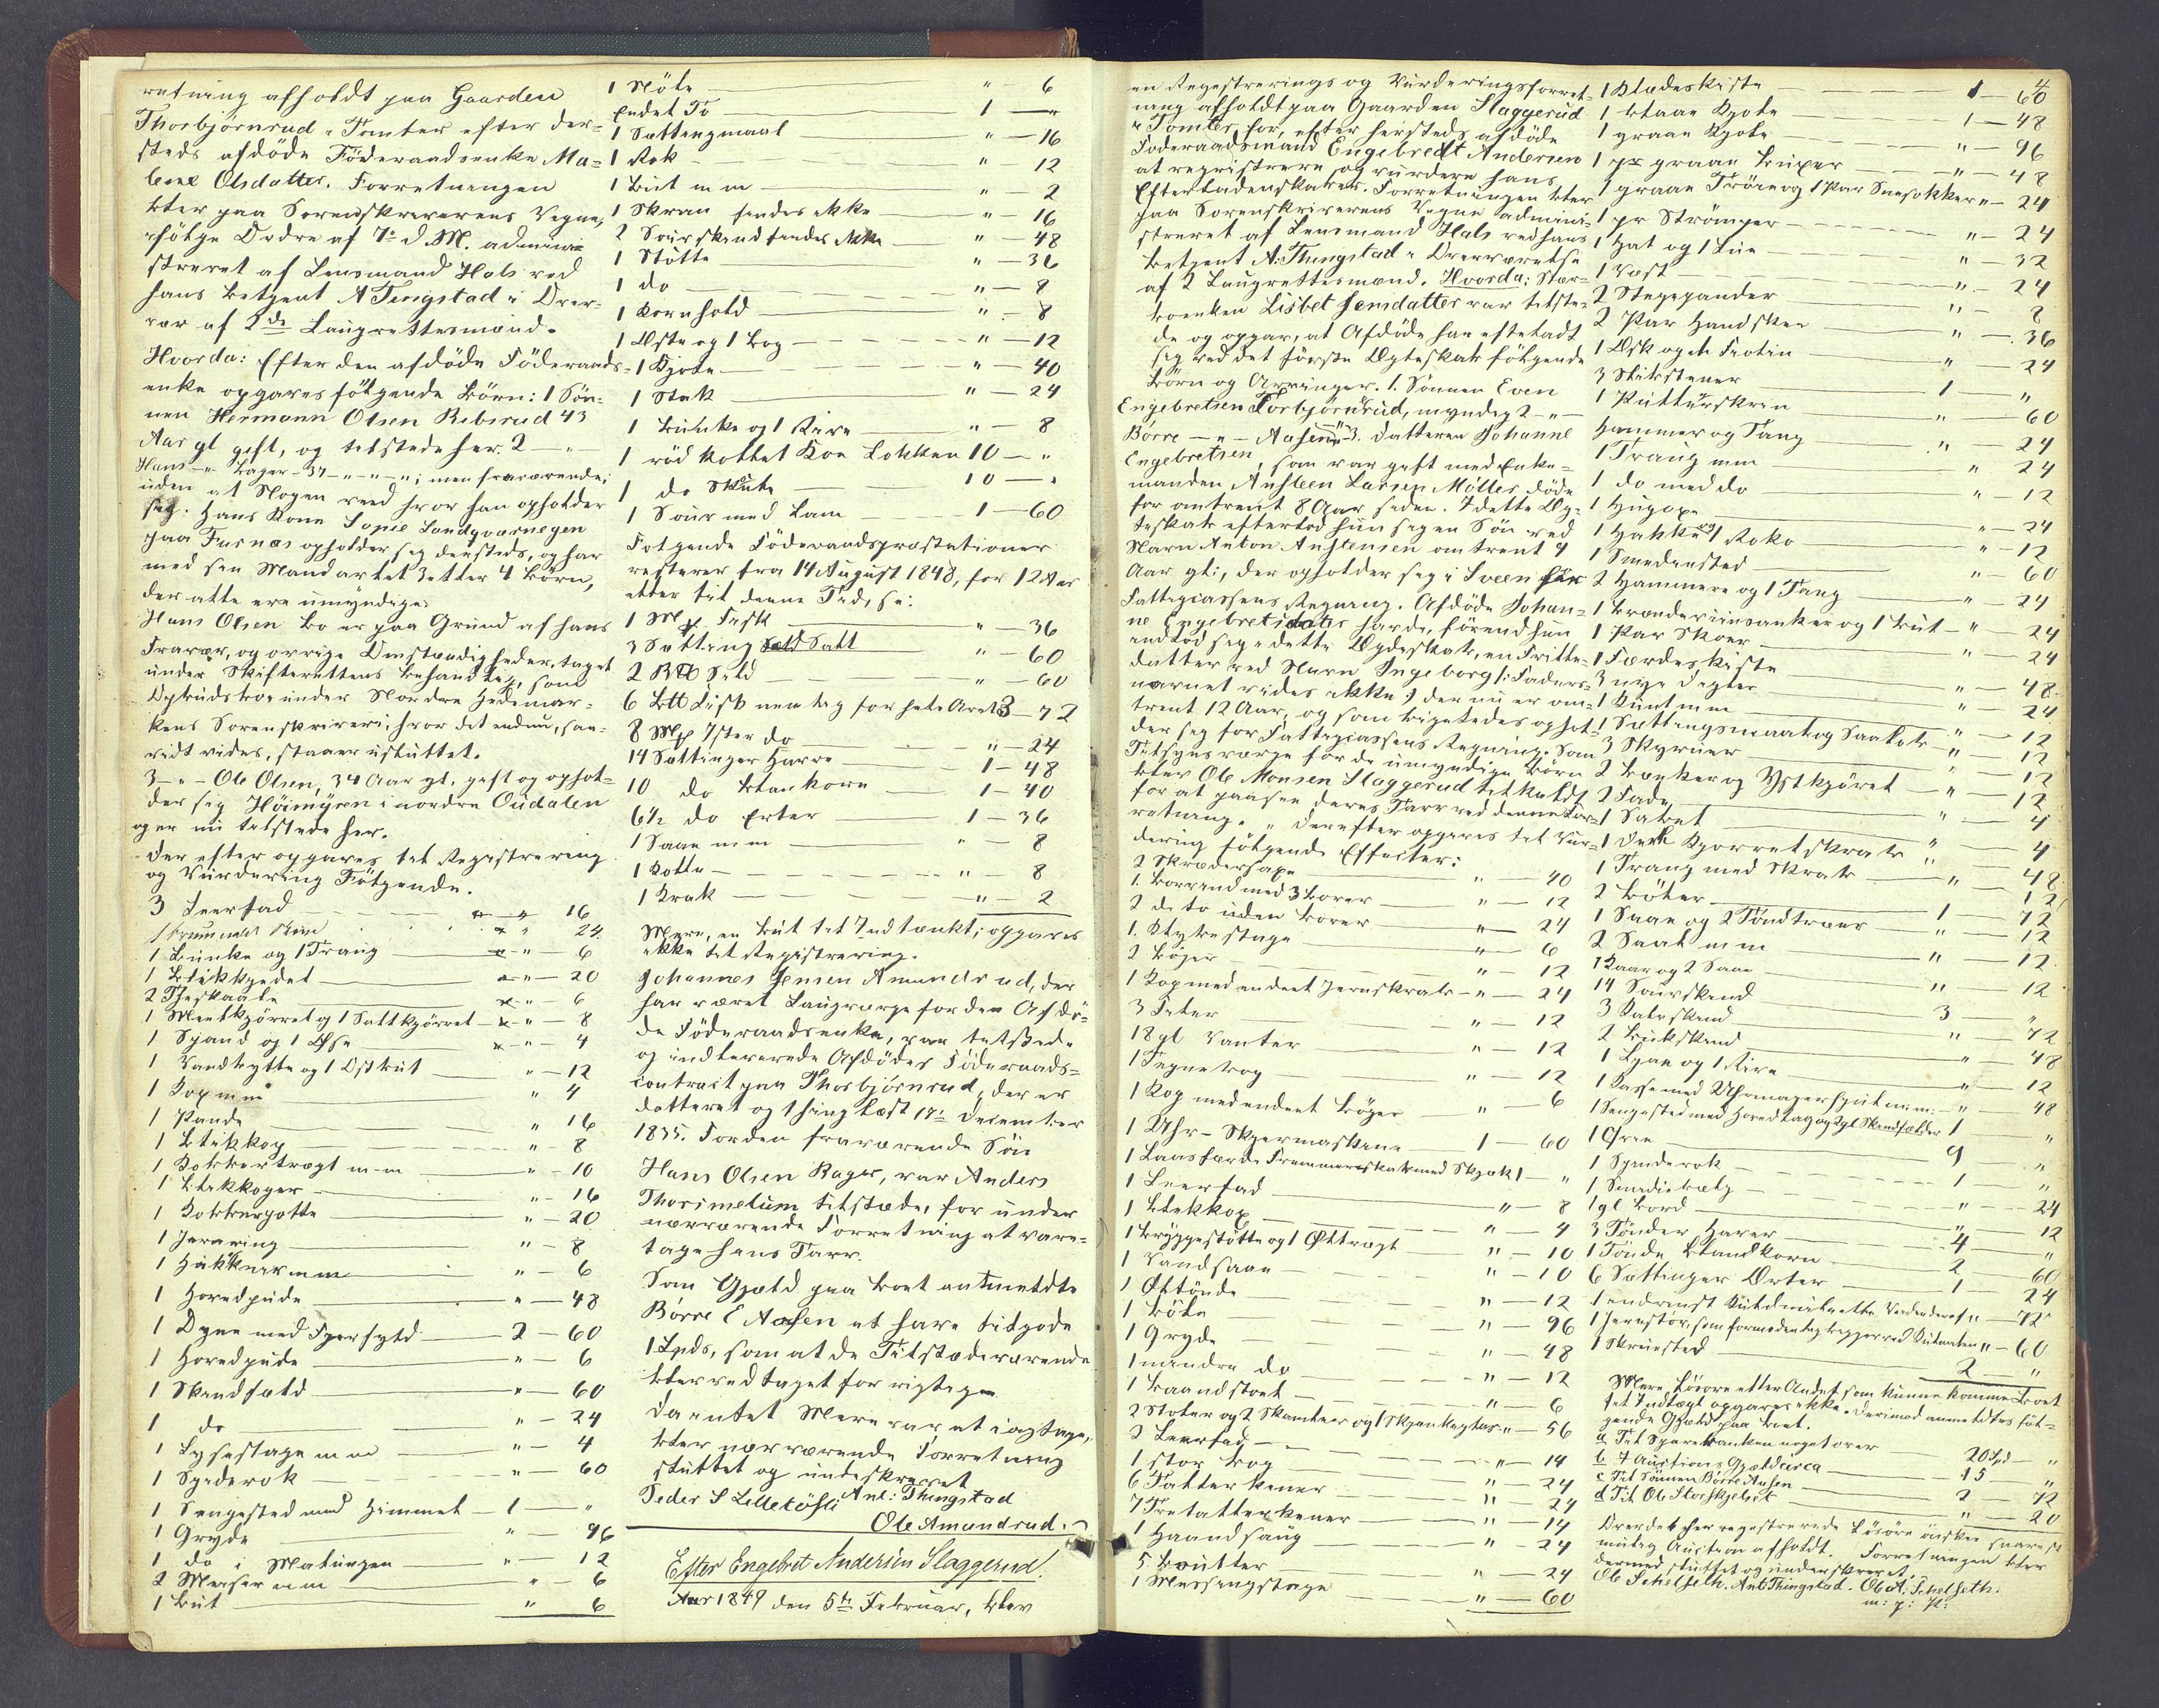 retning afholdt paa Gaarden
Thorbjörnrud i Tomter efter der=
steds afdöde Föderaadsenke Ma=
lene Olsdatter. Forretningen
blev paa Sorenskriverens Vegne,
ifölge Ordre af 7de d. M. admini=
streret af Lensmand Hals ved
hans betjent A Tingstad i Over=
vær af 2de Laugrettesmænd.
Hvorda: Efter den afdöde Föderaads=
enke opgaves fölgende börn: 1 Sön=
nen Hermann Olsen Ribsrud 43
Aar gl gift, og tilstede her. 2 — " —
Hans — " — Bager — 37 — " — " — "; men fraværende;
uden at Nogen veed hvor han opholder
sig. Hans Kone Sopie Sandqværnegen
paa Furnæs opholder sig densteds, og har
med sin Mand avlet 3 eller 4 börn,
der alle ere umyndige.
Hans Olsen bo er paa Grund af hans
Fravær, og övrige Omstændigheder, taget
under Skifterettens behandling, som
Opbudsbo under Nordre Hedemar=
kens Sorenskriveri, hvor det endnu, saa=
vidt vides, staaer usluttet.
3 — " — Ole Olsen, 34 Aar gl. gift og ophol=
der sig Höimÿren i nordre Oudalen
og er nu tilstede her.
Derefter opgaves til Registrering
og Vurdering Fölgende.
3 Leerfad " 16
" 24
1 bunke og 1 Traug " — 6
1 blikkjedel " — 20
2 Theskaale " — 6
1 Meelkjörret og 1 Saltkjörret " — 8
1 Spand og 1 Öse " — 4
1 Vandbytte og 1 Ostbut " — 12
1 Kop mm " 4
1 Pande " 16
1 blikkop " 8
1 Kobbertragt mm " — 10
1 blikkoger " — 16
1 Kobbergotte " — 20
1 Jernring " — 8
1 Hakkniv mm " — 6
1 Hovedpude " — 48
1 Dyne med Fjersyld 2 — 60
1 Hovedpude " — 6
1 Skindfæld " — 60
1 do " — 24
1 Lysestage mm " — 4
1 Spiderok " — 60
1 Sengested med Himmel 1 — "
1 Gryde " — 96
1 do i Malingen " — 12
2 Meiser mm " — 6
1 but " 6
1 Nöle " 6
Endel Tö 1 — "
1 Sættingmaal " — 16
1 Rok " 12
1 but mm " — 2
1 Skran findes ikke " — 16
2 Sauskind findes ikke " 48
1 Stötte " — 36
1 do " — 8
1 Kornsold " — 8
1 Æske og 1 bog " — 12
1 Kjole " — 40
1 Stak " — 24
1 bunke og 1 Rive " — 8
1 röd kollet Koe Lokken 10 — "
1 do Skute 10 — "
1 Sau med Lam 1 — 60
Fölgende Föderaadspræstationer
resterer fra 14 August 1848, for 12 Aar
eller til denne Tid, s:
1 Mß Fisk " — 36
3 Sætting Salt " — 60
2 Btt Sild " — 60
6 btt Fisk nemlig for hele Aaret 3 — 72
8 Mß Ister do " — 24
14 Sættinger Havre 1 — 48
10 do blankorn 1 — 40
6½ do Erter 1 — 36
1 Saae mm " 8
1 Kolle " 8
1 Krak " — 2
Mere, en but til Indtænkt; opgaves
ikke til Registrering.
Johannes Jensen Amundrud, der
har været Laugværge for den Afdö=
de Föderaadsenke, var tilstede
og indleverede Afdödes Föderaads=
contract paa Thorbjörnrud, der er
datteret og thinglæst 17de December
1835. For den fraværende Sön
Hans Olsen Bager, var Anders
Thorsmelum tilstæde, for under
nærværende Forretning at vare=
tage hans Tarv.
Som Gjæld paa boet anmeldte
Börre E Aasen at have tilgode
1 Spds, som at de Tilstædeværende
blev vedtaget for rigtig.
Da intet Mere var at iagttage,
blev nærværende Forretning
sluttet og underskrevet
Peder S Lilletösli Ant: Thingstad
Ole Amundrud.
Efter Engebret Andersen Slaggerud.
Aar 1849 den 5te Februar, blev
en Registrerings og Vurderingsforret=
ning afholdt paa Gaarden Slaggerud
i Tomter for, efter hersteds afdöde
Föderaadsmand Engebredt Andersen
at registrere og vurdere hans
Efterladenskaber. Forretningen blev
paa Sorenskriverens Vegne admini=
streret af Lensmand Hals ved hans
betjent A: Thingstad i Overværelse
af 2 Laugrettesmænd. Hvorda: Stær=
boenken Lisbet Jensdatter var tilste=
de og opgav, at Afdöde har efterladt
sig ved det förste Ægteskab fölgende
börn og Arvinger. 1. Sönnen Even
Engebretsen Torbjörnrud, myndig 2 — " —
Börre — " — Aasen " 3. Datteren Johanne
Engebretsen, som var gift med Enke=
manden Ansteen Larsen Möller döde
for omtrent 8 Aar siden. I dette Æg=
teskab efterlod hun sig en Sön ved
Navn Anton Anstensen omtrent 9
Aar gl:, der opholder sig i Sveen for
Fattigcassens Regning. Afdöde Johan=
ne Engebretsdatter havde, förend hun
indlod sig i dette Ægteskab, en Frille=
datter ved Navn Ingeborg /: Faders=
navnet vides ikke :/ der nu er om=
trent 12 Aar, og som ligeledes ophol=
der sig for Fattigcassens Regning. Som
Tilsynsværge for de umyndige börn
blev Ole Monsen Slaggerud tilkaldt
for at paasee deres Tarv ved denne For=
retning. " Derefter opgaves til Vur=
dering fölgende Effecter:
2 Skrædersaxe " — 40
1. borvind med 3 borer " — 12
2 dito uden borer " 24
1. Klykestage " 6
2 böger " — 12
1 Kop med endeel Jernskrab " — 24
3 File " 12
18 gl Vanter " — 12
1 Tegnebog " — 12
1 Kop med endeel böger " — 6
1 Uhr-Skjermaskine 1 — 60
1 Laasfærdi Fremmerskab med Skjæk 1 — "
1 Leerfad " — 8
1 blikkop " — 4
1 bryggestötte og 1 Öltragt " — 10
1 Vandsaae " — 10
1 Öltönde " — 12
1 böle " — 96
1 Gryde " — 48
1 mindre do " — 12
1 baandstoel " — 6
2 Stoler og 2 Skamler og 1 Skjenkeglas " — 56
2 Leerfad " — 14
1 stor bog " — 24
6 Tallerkener " 24
7 Trætallerkener " — 14
1 Haandsaug " — 24
5 bouteller " — 24
1 Messingstage " — 60
1 Klædeskiste 1 — 60
1 blaae Kjole 1 — 48
1 graae Kjole " — 96
1 pr graae buxer " — 48
1 graae Tröie og 1 Par Sneesokker " — 24
1 pr Strömper " — 24
1 Hat og 1 Lue " — 32
1 Vest " — 24
2 Stegepander " 8
2 Par Handsker " — 36
1 Æsk og eh Fiolin " 24
3 Slibstener 1 — "
1 Putturskrin " — 60
Hammer og Tang " 24
1 Traug mm " 24
1 do med do " 12
1 Hugöxe " — 24
1 Hakke og 1 Roko " — 12
1 Smediested " 60
2 Hammere og 1 Tang " — 24
1 brændeviinsanker og 1 but — " 24
1 Par Skoer " 24
1 Færdeskiste " — 48
3 nye Digler " — 24
1 Punt mm " 12
1 Sættingsmaal og Saalek — " 12
3 Skyruer " — 12
2 bænker og Ystkjöret — " — 12
2 Fade " — 4
1 Salvet "
1 Deel Kjörretskrab " — 4
1 Traug med Skrab " — 48
2 böker 12
1 Saae og 2 Töndtræer 1 — 72
2 Saal mm " — 12
1 Kaar og 2 Saae " — 12
14 Sauskind " 12
3 Kalveskind 3 — "
2 bukskind " — 72
1 Ljaae og 1 Rive " — 48
1 Kasse med Uhrmagerspul m:m: — " — 12
1 Sengested med Hovedlag og 2 gl Skindfælder 1 48
1 Öxe "
1 Spinderok 9 — "
1 Smediebælg 1 — "
1 gl bord " — 24
3 Tönder Haver 4 — 12
1 Tönde blandkorn 2 — "
6 Sættinger Erter 1 — 60
24
" — 72
" — 60
1 Skruested 2 — "
Mere Lösöre eller Andet som kunne komme boet
til Indtægt opgaves ikke. Derimod anmeldtes föl=
gende Gjæld paa boet.
a Til Sparebanken noget over 20 Spd — "
b I Auctions Gjæld circa 15 "
c Til Sönnen Börre Aasen 2 — 72
d Til Ole Storskjelset " — 20
Över det her registrerede Lösöre önskes snarest
mulig Auction afholdt. Forretningen blev
dermed sluttet og underskrevet.
Ole Schelseth. Ant: Thingstad. Ole A: Schelseth.
m: p: P: